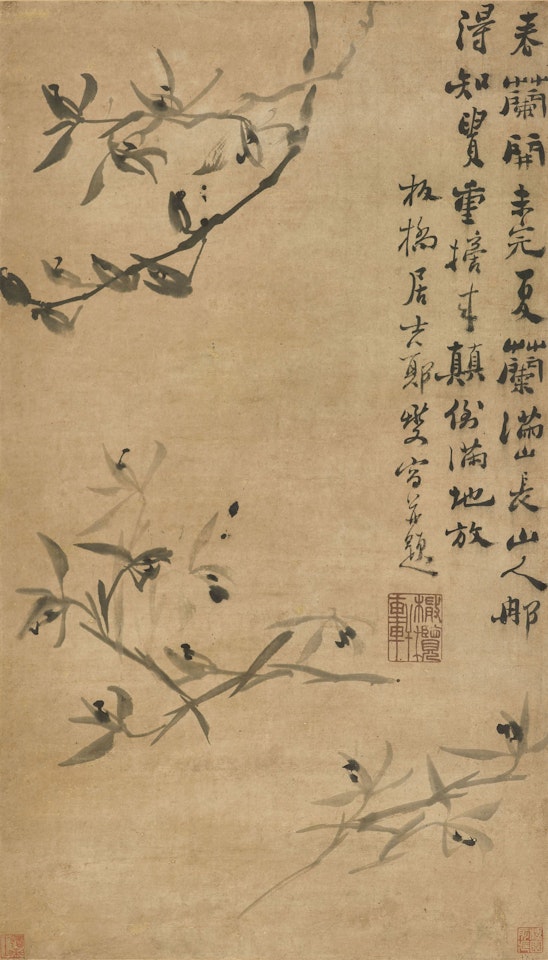 春蘭開未完夏蘭滿山長山人那
得知覺重擔来顛倒滿地放
板橋居士鄭燮寫并題
橄欖軒